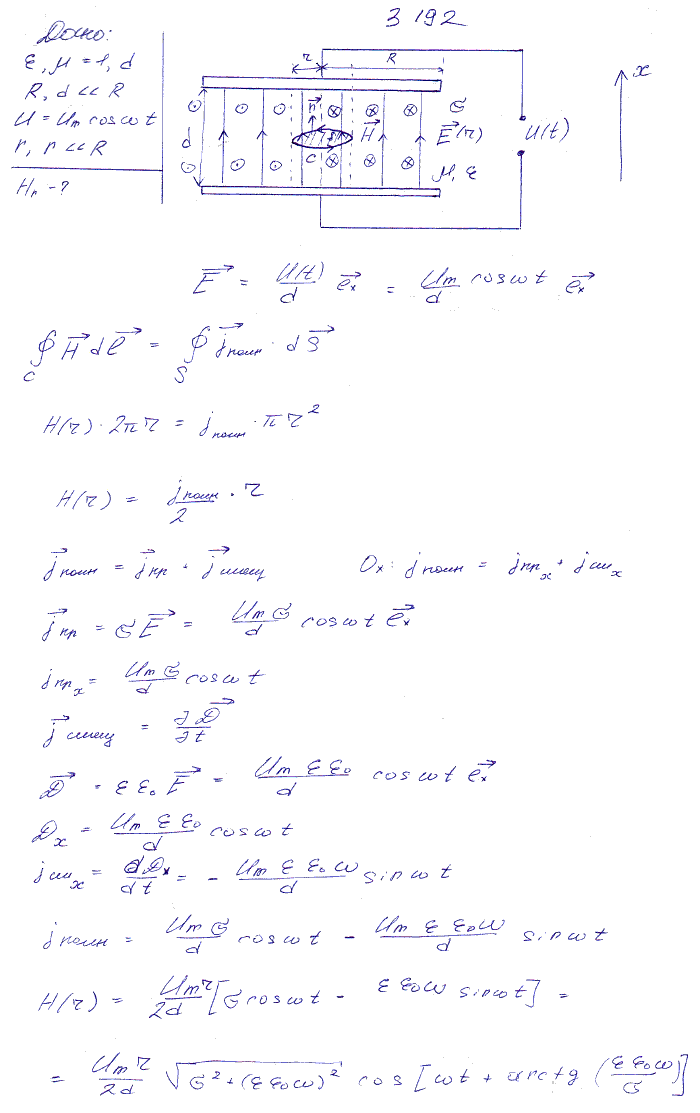 3 192
Дано:
ε, μ = 1, d
R, d << R
U = Um cos ωt
r, r << R
Hr - ?
r R x
σ
d n H E(r) U(t)
C μ, ε
E = U(t)/d eₓ = Um/d cos ωt eₓ
∮_C H dl = ∮_S jполн · dS
H(r) · 2πr = jполн · πr²
H(r) = jполн/2 · r
jполн = jпр + jсмещ Ox: jполн = jпрₓ + jсмₓ
jпр = σE = Umσ/d cos ωt eₓ
jпрₓ = Umσ/d cos ωt
jсмещ = ∂D/∂t
D = εε₀E = Umεε₀/d cos ωt eₓ
Dₓ = Umεε₀/d cos ωt
jсмₓ = dDₓ/dt = - Umεε₀ω/d sin ωt
jполн = Umσ/d cos ωt - Umεε₀ω/d sin ωt
H(r) = Umr/2d [σ cos ωt - εε₀ω sin ωt] =
= Umr/2d √(σ² + (εε₀ω)²) cos [ωt + arctg (εε₀ω/σ)]